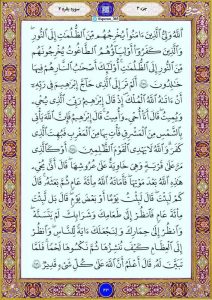 جزء ۳
سورة بقره ۲
ٱللَّهُ وَلِيُّ ٱلَّذِينَ ءَامَنُوا۟ يُخْرِجُهُم مِّنَ ٱلظُّلُمَٰتِ إِلَى ٱلنُّورِ
وَٱلَّذِينَ كَفَرُوٓا۟ أَوْلِيَآؤُهُمُ ٱلطَّٰغُوتُ يُخْرِجُونَهُم
مِّنَ ٱلنُّورِ إِلَى ٱلظُّلُمَٰتِ أُو۟لَٰٓئِكَ أَصْحَٰبُ ٱلنَّارِ هُمْ فِيهَا
خَٰلِدُونَ ۝ أَلَمْ تَرَ إِلَى ٱلَّذِي حَآجَّ إِبْرَٰهِۦمَ فِي رَبِّهِۦٓ
أَنْ ءَاتَىٰهُ ٱللَّهُ ٱلْمُلْكَ إِذْ قَالَ إِبْرَٰهِۦمُ رَبِّيَ ٱلَّذِي يُحْيِۦ
وَيُمِيتُ قَالَ أَنَا۠ أُحْيِۦ وَأُمِيتُ قَالَ إِبْرَٰهِۦمُ فَإِنَّ ٱللَّهَ يَأْتِي
بِٱلشَّمْسِ مِنَ ٱلْمَشْرِقِ فَأْتِ بِهَا مِنَ ٱلْمَغْرِبِ فَبُهِتَ ٱلَّذِي
كَفَرَ وَٱللَّهُ لَا يَهْدِي ٱلْقَوْمَ ٱلظَّٰلِمِينَ ۝ أَوْ كَٱلَّذِي
مَرَّ عَلَىٰ قَرْيَةٍ وَهِيَ خَاوِيَةٌ عَلَىٰ عُرُوشِهَا قَالَ أَنَّىٰ يُحْيِۦ
هَٰذِهِ ٱللَّهُ بَعْدَ مَوْتِهَا فَأَمَاتَهُ ٱللَّهُ مِا۟ئَةَ عَامٍ ثُمَّ بَعَثَهُۥ قَالَ
كَمْ لَبِثْتَ قَالَ لَبِثْتُ يَوْمًا أَوْ بَعْضَ يَوْمٍ قَالَ بَل لَّبِثْتَ
مِا۟ئَةَ عَامٍ فَٱنظُرْ إِلَىٰ طَعَامِكَ وَشَرَابِكَ لَمْ يَتَسَنَّهْ
وَٱنظُرْ إِلَىٰ حِمَارِكَ وَلِنَجْعَلَكَ ءَايَةً لِّلنَّاسِ وَٱنظُرْ
إِلَى ٱلْعِظَامِ كَيْفَ نُنشِزُهَا ثُمَّ نَكْسُوهَا لَحْمًا فَلَمَّا
تَبَيَّنَ لَهُۥ قَالَ أَعْلَمُ أَنَّ ٱللَّهَ عَلَىٰ كُلِّ شَيْءٍ قَدِيرٌ ۝
۴۳